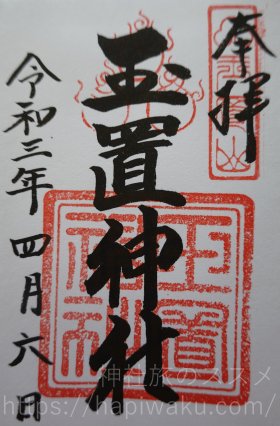 奉拝
玉置神社
令和三年四月六日
玉置神社
神社旅のススメ
https://hapiwaku.com/